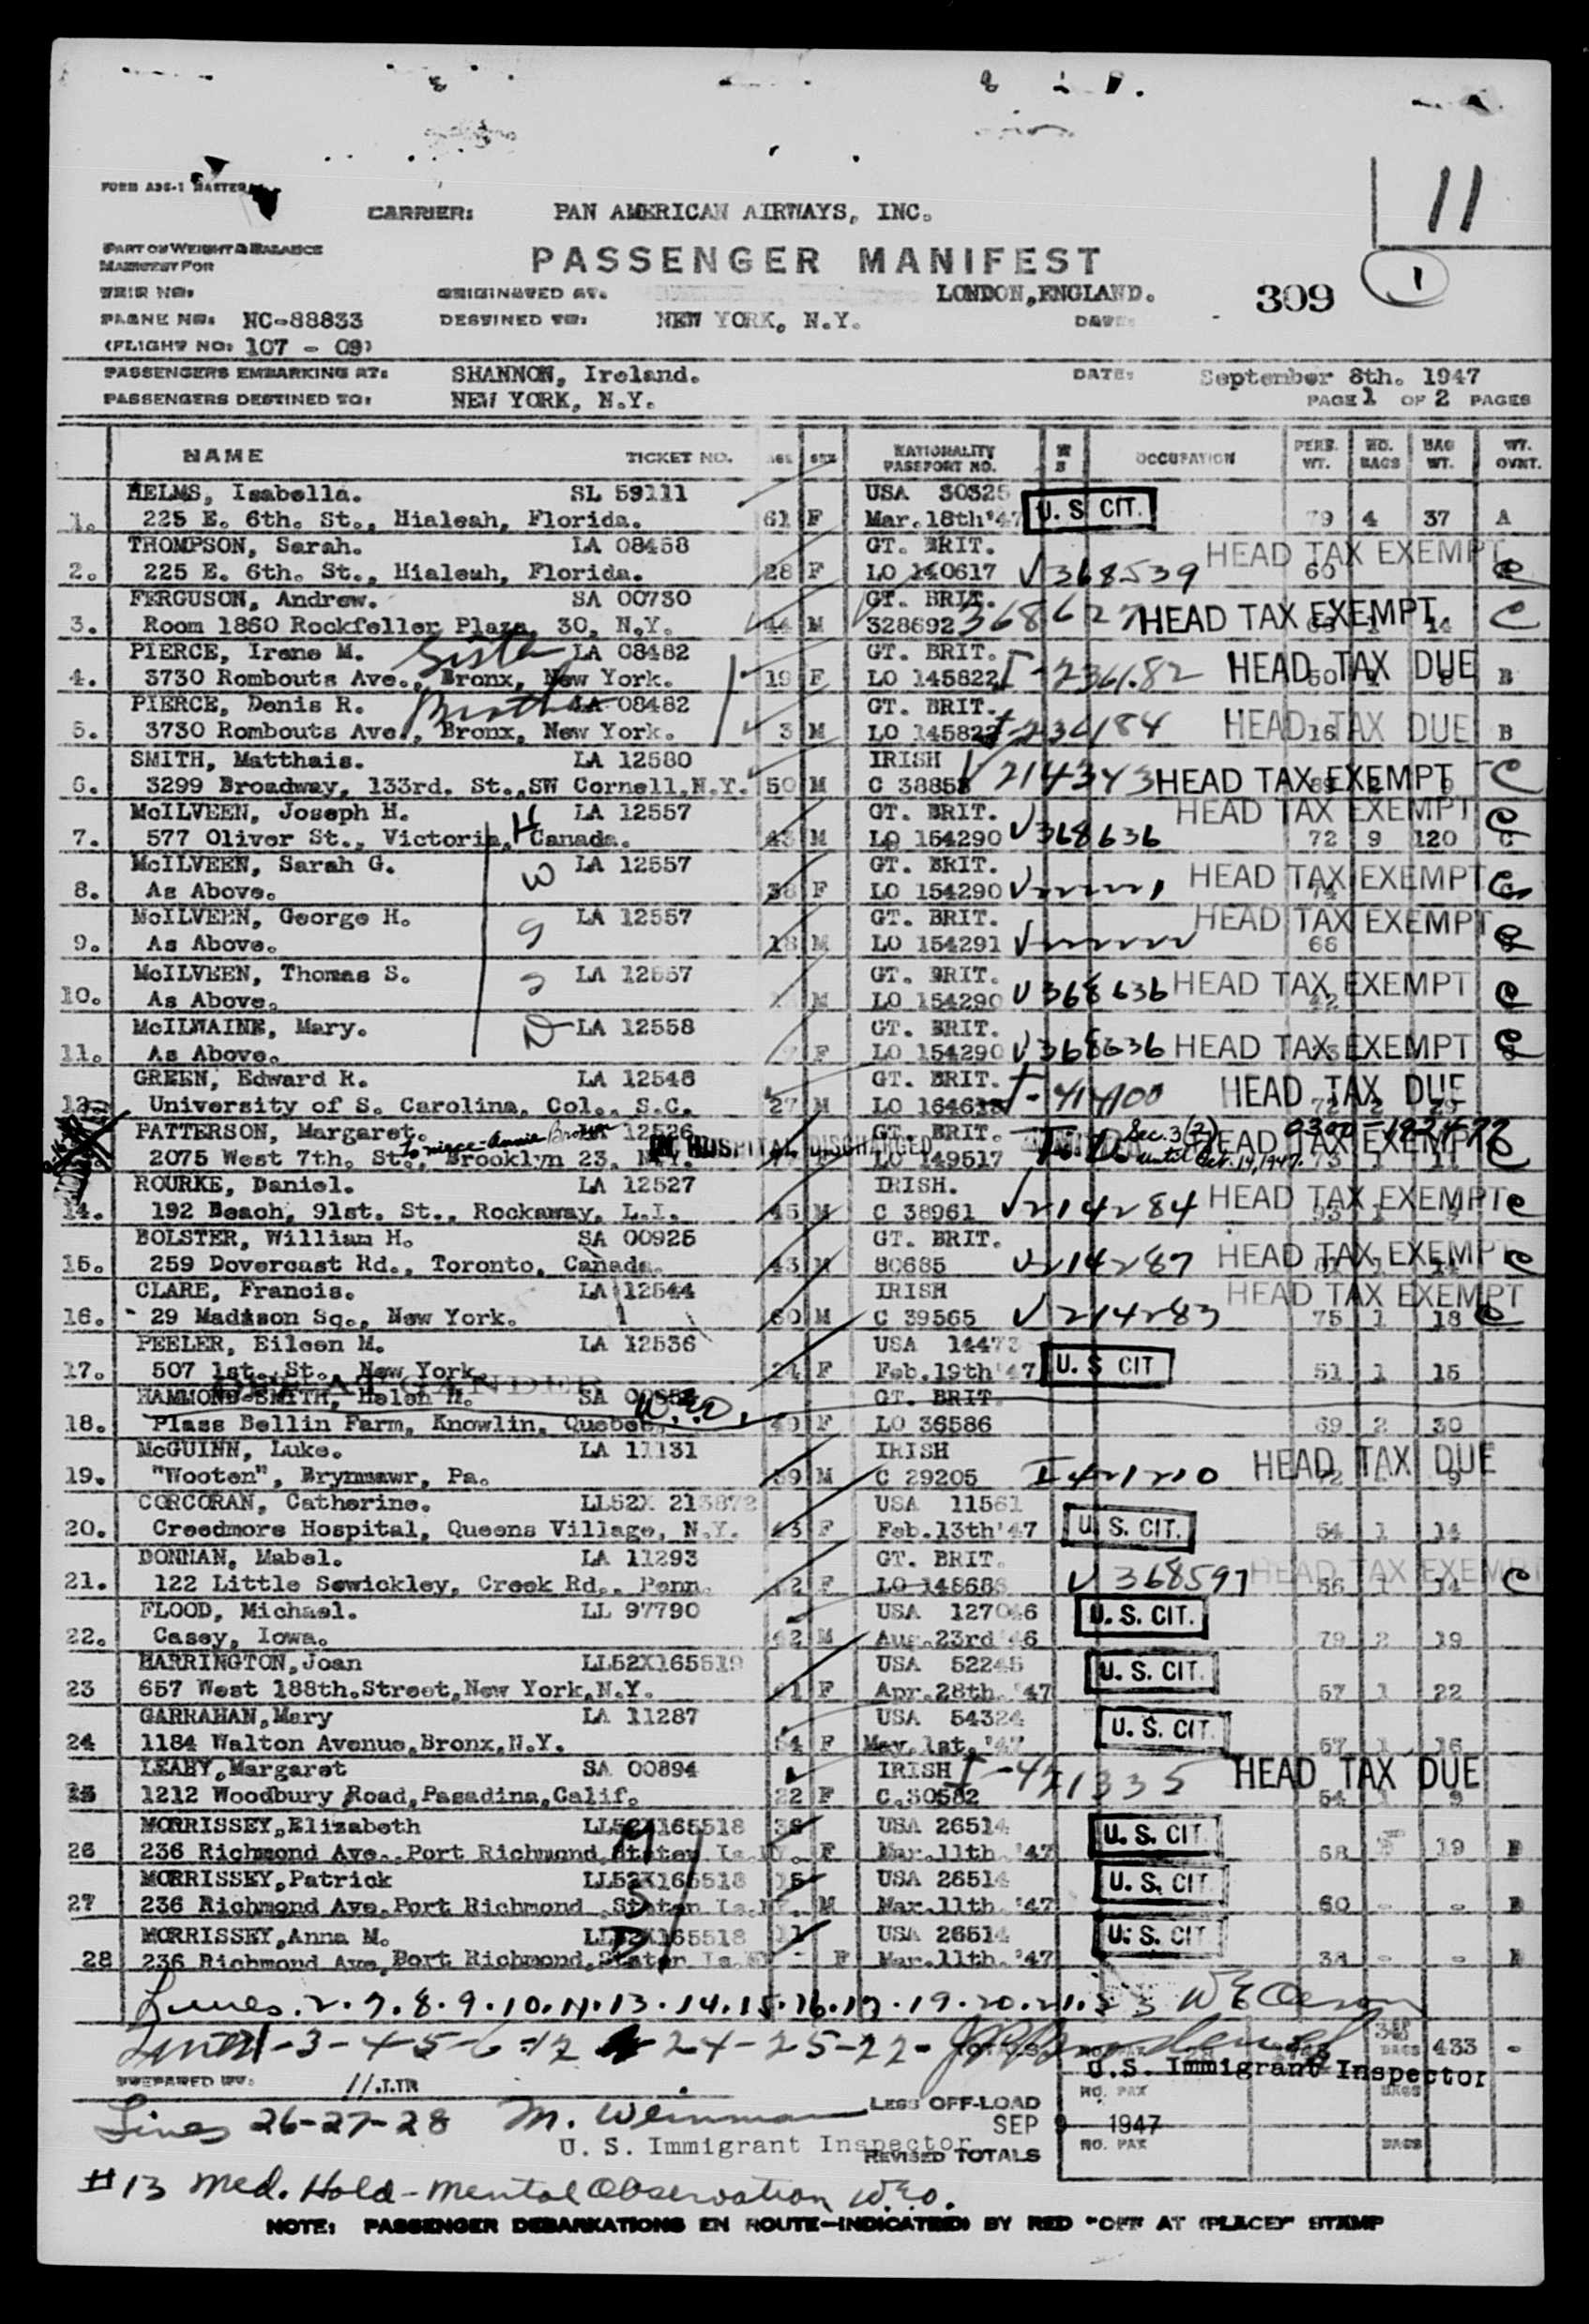 11
FORM A36-1 MASTER
CARRIER: PAN AMERICAN AIRWAYS, INC.
PART ON WEIGHT & BALANCE
MANIFEST FOR
PASSENGER MANIFEST
1
TRIP NO: ORIGINATED AT: LONDON,ENGLAND. 309
PLANE NO: NC-88833 DESTINED TO: NEW YORK, N.Y. DATE:
(FLIGHT NO: 107 - 09)
PASSENGERS EMBARKING AT: SHANNON, Ireland. DATE: September 8th. 1947
PASSENGERS DESTINED TO: NEW YORK, N.Y. PAGE 1 OF 2 PAGES
NAME TICKET NO. AGE SEX NATIONALITY PASSPORT NO. OCCUPATION PERS. WT. NO. BAGS BAG WT. WT. OVNT.
HELMS, Isabella. SL 59111 USA 30325 U. S. CIT.
1. 225 E. 6th. St., Hialeah, Florida. 61 F Mar.18th'47 79 4 37 A
THOMPSON, Sarah. LA 08458 GT. BRIT. HEAD TAX EXEMPT
2. 225 E. 6th. St., Hialeah, Florida. 28 F LO 140617 V368539 60 C
FERGUSON, Andrew. SA 00730 GT. BRIT. 368627 HEAD TAX EXEMPT C
3. Room 1860 Rockfeller Plaza, 30, N.Y. 44 M 328692 14
PIERCE, Irene M. Sister LA 08482 GT. BRIT. HEAD TAX DUE
4. 3730 Rombouts Ave., Bronx, New York. 19 F LO 145822 B
PIERCE, Denis R. Brother LA 08482 GT. BRIT. HEAD TAX DUE
5. 3730 Rombouts Ave., Bronx, New York. 3 M LO 145822 16 B
SMITH, Matthais. LA 12580 IRISH V214343 HEAD TAX EXEMPT C
6. 3299 Broadway, 133rd. St.,SW Cornell,N.Y. 50 M C 38858
McILVEEN, Joseph H. H LA 12557 GT. BRIT. HEAD TAX EXEMPT C
7. 577 Oliver St., Victoria, Canada. 43 M LO 154290 V368636 72 9 120 C
McILVEEN, Sarah G. W LA 12557 GT. BRIT. HEAD TAX EXEMPT C
8. As Above. 38 F LO 154290
McILVEEN, George H. S LA 12557 GT. BRIT. HEAD TAX EXEMPT C
9. As Above. 18 M LO 154291 66
McILVEEN, Thomas S. S LA 12557 GT. BRIT. V368636 HEAD TAX EXEMPT C
10. As Above. M LO 154290 42
McILWAINE, Mary. D LA 12558 GT. BRIT. V368636 HEAD TAX EXEMPT C
11. As Above. F LO 154290
GREEN, Edward R. LA 12548 GT. BRIT. HEAD TAX DUE
12. University of S. Carolina, Col., S.C. 27 M 72 2 29
PATTERSON, Margaret. To niece-Annie Brown LA 12526 IN HOSPITAL DISCHARGED GT. BRIT. Sec. 3(2) until Oct. 14, 1947. HEAD TAX EXEMPT C
2075 West 7th. St., Brooklyn 23, N.Y. LO 149517 73 1
ROURKE, Daniel. LA 12527 IRISH. V214284 HEAD TAX EXEMPT C
14. 192 Beach, 91st. St., Rockaway, L.I. 45 M C 38961 93 1
BOLSTER, William H. SA 00925 GT. BRIT. V214287 HEAD TAX EXEMPT C
15. 259 Dovercast Rd., Toronto, Canada. 43 M 80685
CLARE, Francis. LA 12544 IRISH HEAD TAX EXEMPT
16. 29 Madison Sq., New York. 60 M C 39565 V214283 75 1 18 C
PEELER, Eileen M. LA 12536 USA 14473 U. S. CIT
17. 507 1st. St., New York. 24 F Feb.19th'47 51 1 15
HAMMOND-SMITH, Helen H. GANDER SA GT. BRIT
18. Plass Bellin Farm, Knowlin, Quebec. W.E.O. 49 F LO 36586 69 2 30
McGUINN, Luke. LA 11131 IRISH HEAD TAX DUE
19. "Wooten", Brynmawr, Pa. 59 M C 29205 I 421210 72 9
CORCORAN, Catherine. LL52X 213872 USA 11561 U. S. CIT.
20. Creedmore Hospital, Queens Village, N.Y. 43 F Feb.13th'47 54 1 14
DONNAN, Mabel. LA 11293 GT. BRIT. V368597 HEAD TAX EXEMPT
21. 122 Little Sewickley, Creek Rd., Penn. F LO 148688 56 1 14 C
FLOOD, Michael. LL 97790 USA 127046 U. S. CIT.
22. Casey, Iowa. 42 M Aug.23rd'46 79 2 19
HARRINGTON,Joan LL52X165519 USA 52245 U. S. CIT.
23 657 West 188th.Street,New York,N.Y. F Apr.28th.'47 57 1 22
GARRAHAN,Mary LA 11287 USA 54324 U. S. CIT.
24 1184 Walton Avenue,Bronx,N.Y. F May.1st.'47 57 1 16
LEAHY,Margaret SA 00894 IRISH HEAD TAX DUE
25 1212 Woodbury Road,Pasadina,Calif. 22 F C.30582 54 1 9
MORRISSEY,Elizabeth LL52X165518 M 36 USA 26514 U. S. CIT.
26 236 Richmond Ave.Port Richmond,Staten Is. F Mar.11th.'47 68 19 B
MORRISSEY,Patrick LL52X165518 S 15 USA 26514 U. S. CIT
27 236 Richmond Ave.Port Richmond,Staten Is. M Mar.11th.'47 60 - - B
MORRISSEY,Anna M. LL52X165518 D 11 USA 26514 U. S. CIT
28 236 Richmond Ave,Port Richmond,Staten Is. F Mar.11th.'47 38 - - B
Lines.2.7.8.9.10.11.13.14.15.16.17.19.20.21.23
Lines 1-3-4-5-6-12 24-25-22- TOTALS NO. PAX BAGS 433 -
U.S. Immigrant Inspector
PREPARED BY:
Lines 26-27-28 M. Weinman LESS OFF-LOAD NO. PAX BAGS
SEP 9 1947
U. S. Immigrant Inspector REVISED TOTALS NO. PAX BAGS
#13 Med. Hold - Mental Observation W.E.O.
NOTE: PASSENGER DEBARKATIONS EN ROUTE—INDICATED BY RED "OFF AT (PLACE)" STAMP